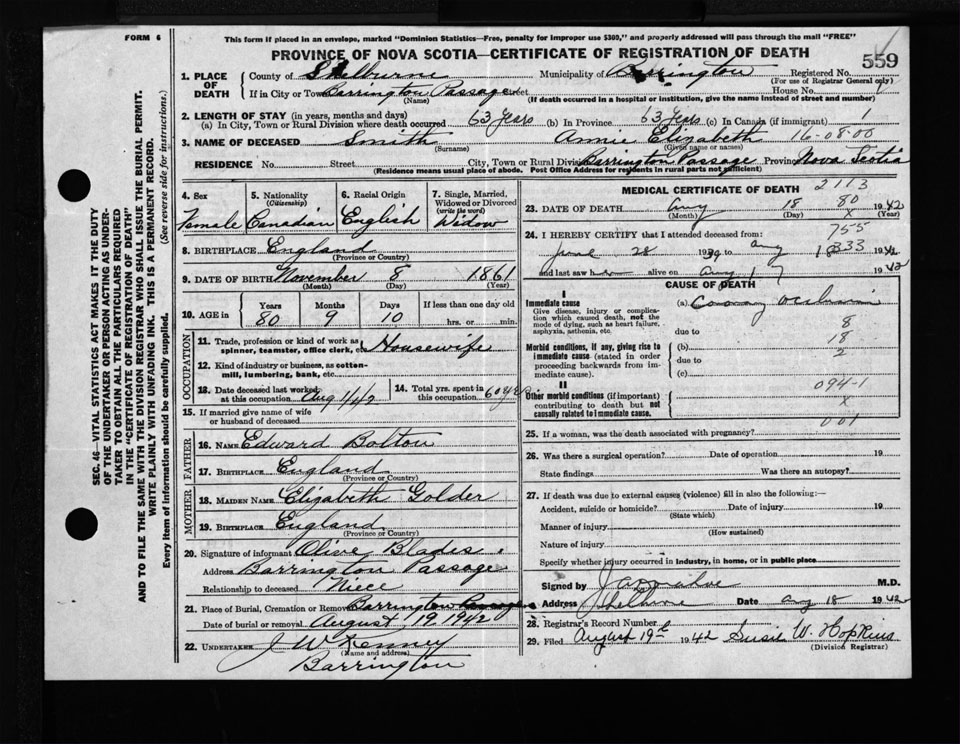 FORM 6
This form if placed in an envelope, marked "Dominion Statistics—Free, penalty for improper use $300," and properly addressed will pass through the mail "FREE"
PROVINCE OF NOVA SCOTIA—CERTIFICATE OF REGISTRATION OF DEATH
559
1. PLACE OF DEATH
County of Shelburne Municipality of Barrington Registered No.
(For use of Registrar General only)
If in City or Town Barrington Passage Street House No.
(Name) (If death occurred in a hospital or institution, give the name instead of street and number)
2. LENGTH OF STAY (in years, months and days)
(a) In City, Town or Rural Division where death occurred 63 Years (b) In Province 63 Years (c) In Canada (if immigrant) 1
3. NAME OF DECEASED Smith Annie Elizabeth 16-08-00
(Surname) (Given name or names)
RESIDENCE No. Street City, Town or Rural Division Barrington Passage Province Nova Scotia
(Residence means usual place of abode. Post Office Address for residents in rural parts not sufficient)
4. Sex
Female
5. Nationality
(Citizenship)
Canadian
6. Racial Origin
English
7. Single, Married, Widowed or Divorced
(write the word)
Widow
8. BIRTHPLACE England
(Province or Country)
9. DATE OF BIRTH November 8 1861
(Month) (Day) (Year)
10. AGE in
Years Months Days If less than one day old
80 9 10 hrs. or min.
OCCUPATION
11. Trade, profession or kind of work as spinner, teamster, office clerk, etc. Housewife
12. Kind of industry or business, as cotton-mill, lumbering, bank, etc.
13. Date deceased last worked at this occupation Aug 1/42
14. Total yrs. spent in this occupation 60 yrs
15. If married give name of wife or husband of deceased
FATHER
16. NAME Edward Bolton
17. BIRTHPLACE England
(Province or Country)
MOTHER
18. MAIDEN NAME Elizabeth Golder
19. BIRTHPLACE England
(Province or Country)
20. Signature of informant Olive Blades
Address Barrington Passage
Relationship to deceased Niece
21. Place of Burial, Cremation or Removal Barrington Passage
Date of burial or removal August 19 1942
22. UNDERTAKER J W Kenney
(Name and address)
Barrington
MEDICAL CERTIFICATE OF DEATH
2113
23. DATE OF DEATH Aug 18 80 1942
(Month) (Day) x (Year)
755
24. I HEREBY CERTIFY that I attended deceased from:
June 28 1939 to Aug 18 333 1942
and last saw her alive on Aug 17 1942
CAUSE OF DEATH
I
Immediate cause
Give disease, injury or complication which caused death, not the mode of dying, such as heart failure, asphyxia, asthenia, etc.
(a) Coronary occlusion
due to 8
18
Morbid conditions, if any, giving rise to immediate cause (stated in order proceeding backwards from immediate cause).
(b)
due to 2
(c)
II
Other morbid conditions (if important) contributing to death but not causally related to immediate cause.
094-1
x
001
25. If a woman, was the death associated with pregnancy?
26. Was there a surgical operation? Date of operation 19
State findings Was there an autopsy?
27. If death was due to external causes (violence) fill in also the following:—
Accident, suicide or homicide? Date of injury 19
(State which)
Manner of injury
(How sustained)
Nature of injury
Specify whether injury occurred in industry, in home, or in public place
Signed by M.D.
Address Shelburne Date Aug 18 1942
28. Registrar's Record Number
29. Filed August 19th 1942 Susie W. Hopkins
(Division Registrar)
SEC. 46—VITAL STATISTICS ACT MAKES IT THE DUTY
OF THE UNDERTAKER OR PERSON ACTING AS UNDER-
TAKER TO OBTAIN ALL THE PARTICULARS REQUIRED
IN THE "CERTIFICATE OF REGISTRATION OF DEATH"
AND TO FILE THE SAME WITH THE DIVISION REGISTRAR WHO SHALL ISSUE THE BURIAL PERMIT.
WRITE PLAINLY WITH UNFADING INK. THIS IS A PERMANENT RECORD.
Every item of information should be carefully supplied. (See reverse side for instructions.)